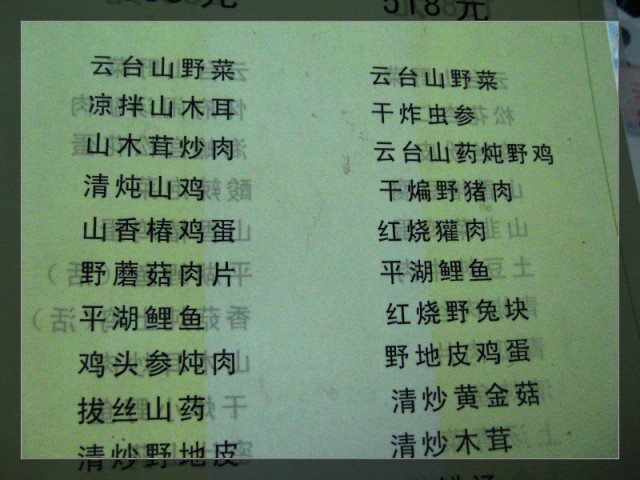 518元
云台山野菜
凉拌山木耳
山木茸炒肉
清炖山鸡
山香椿鸡蛋
野蘑菇肉片
平湖鲤鱼
鸡头参炖肉
拔丝山药
清炒野地皮
云台山野菜
干炸虫参
云台山药炖野鸡
干煸野猪肉
红烧獾肉
平湖鲤鱼
红烧野兔块
野地皮鸡蛋
清炒黄金菇
清炒木茸